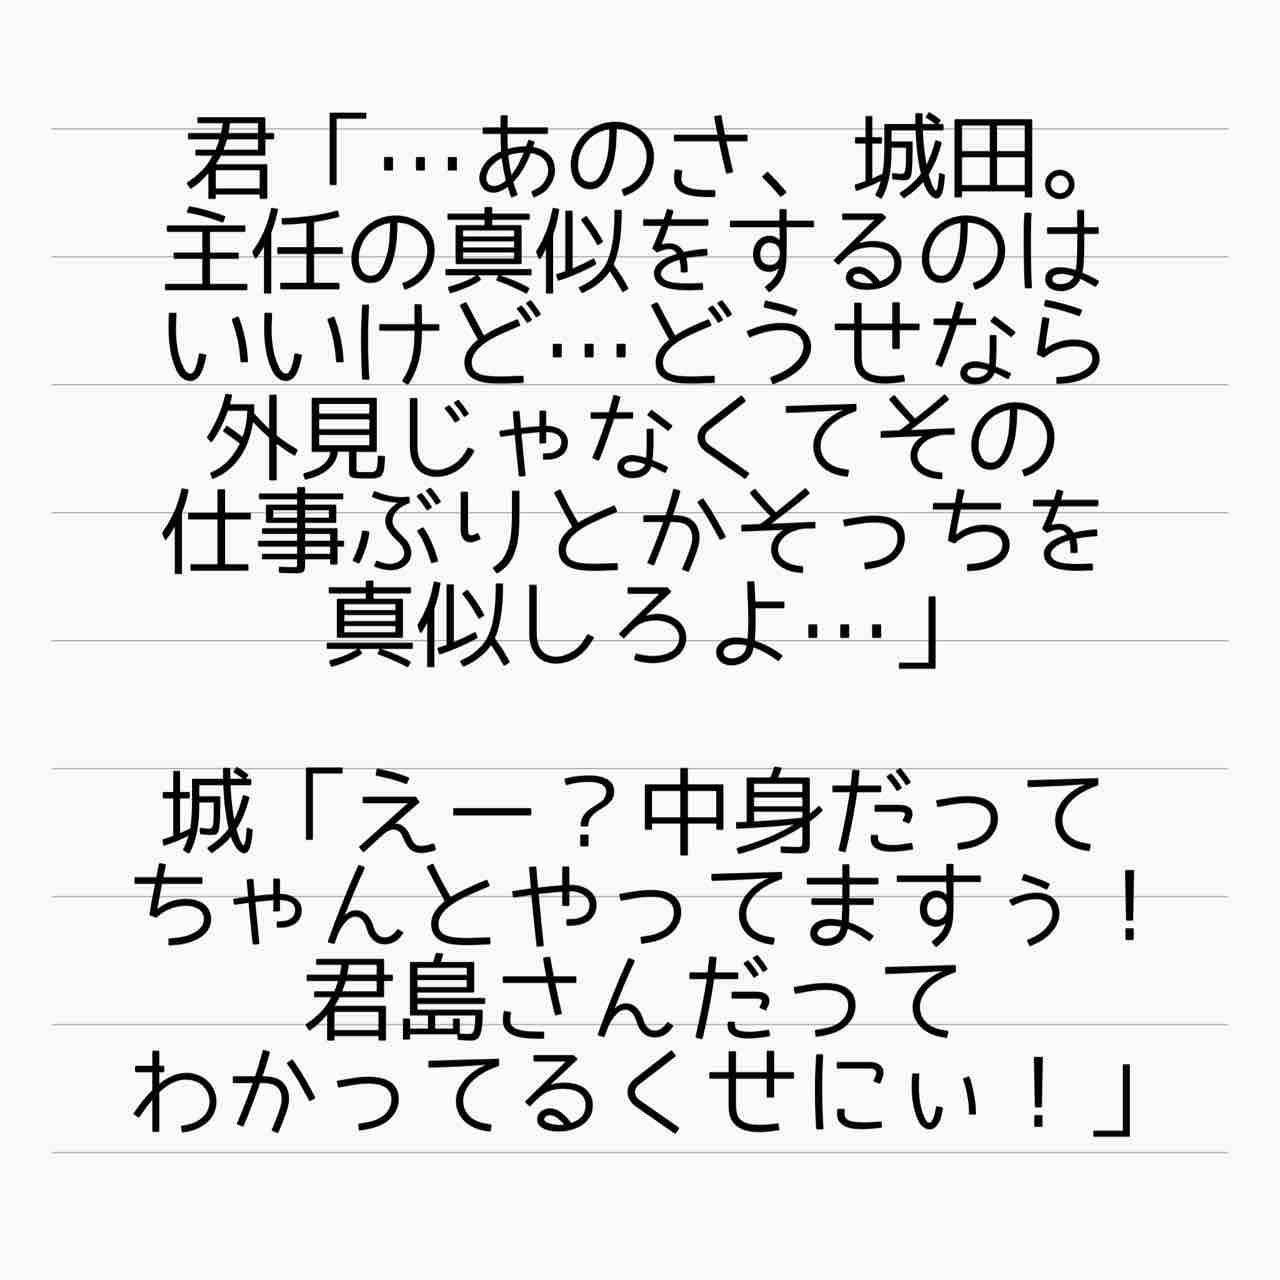 君「…あのさ、城田。
主任の真似をするのは
いいけど…どうせなら
外見じゃなくてその
仕事ぶりとかそっちを
真似しろよ…」
城「えー？中身だって
ちゃんとやってますぅ！
君島さんだって
わかってるくせにぃ！」